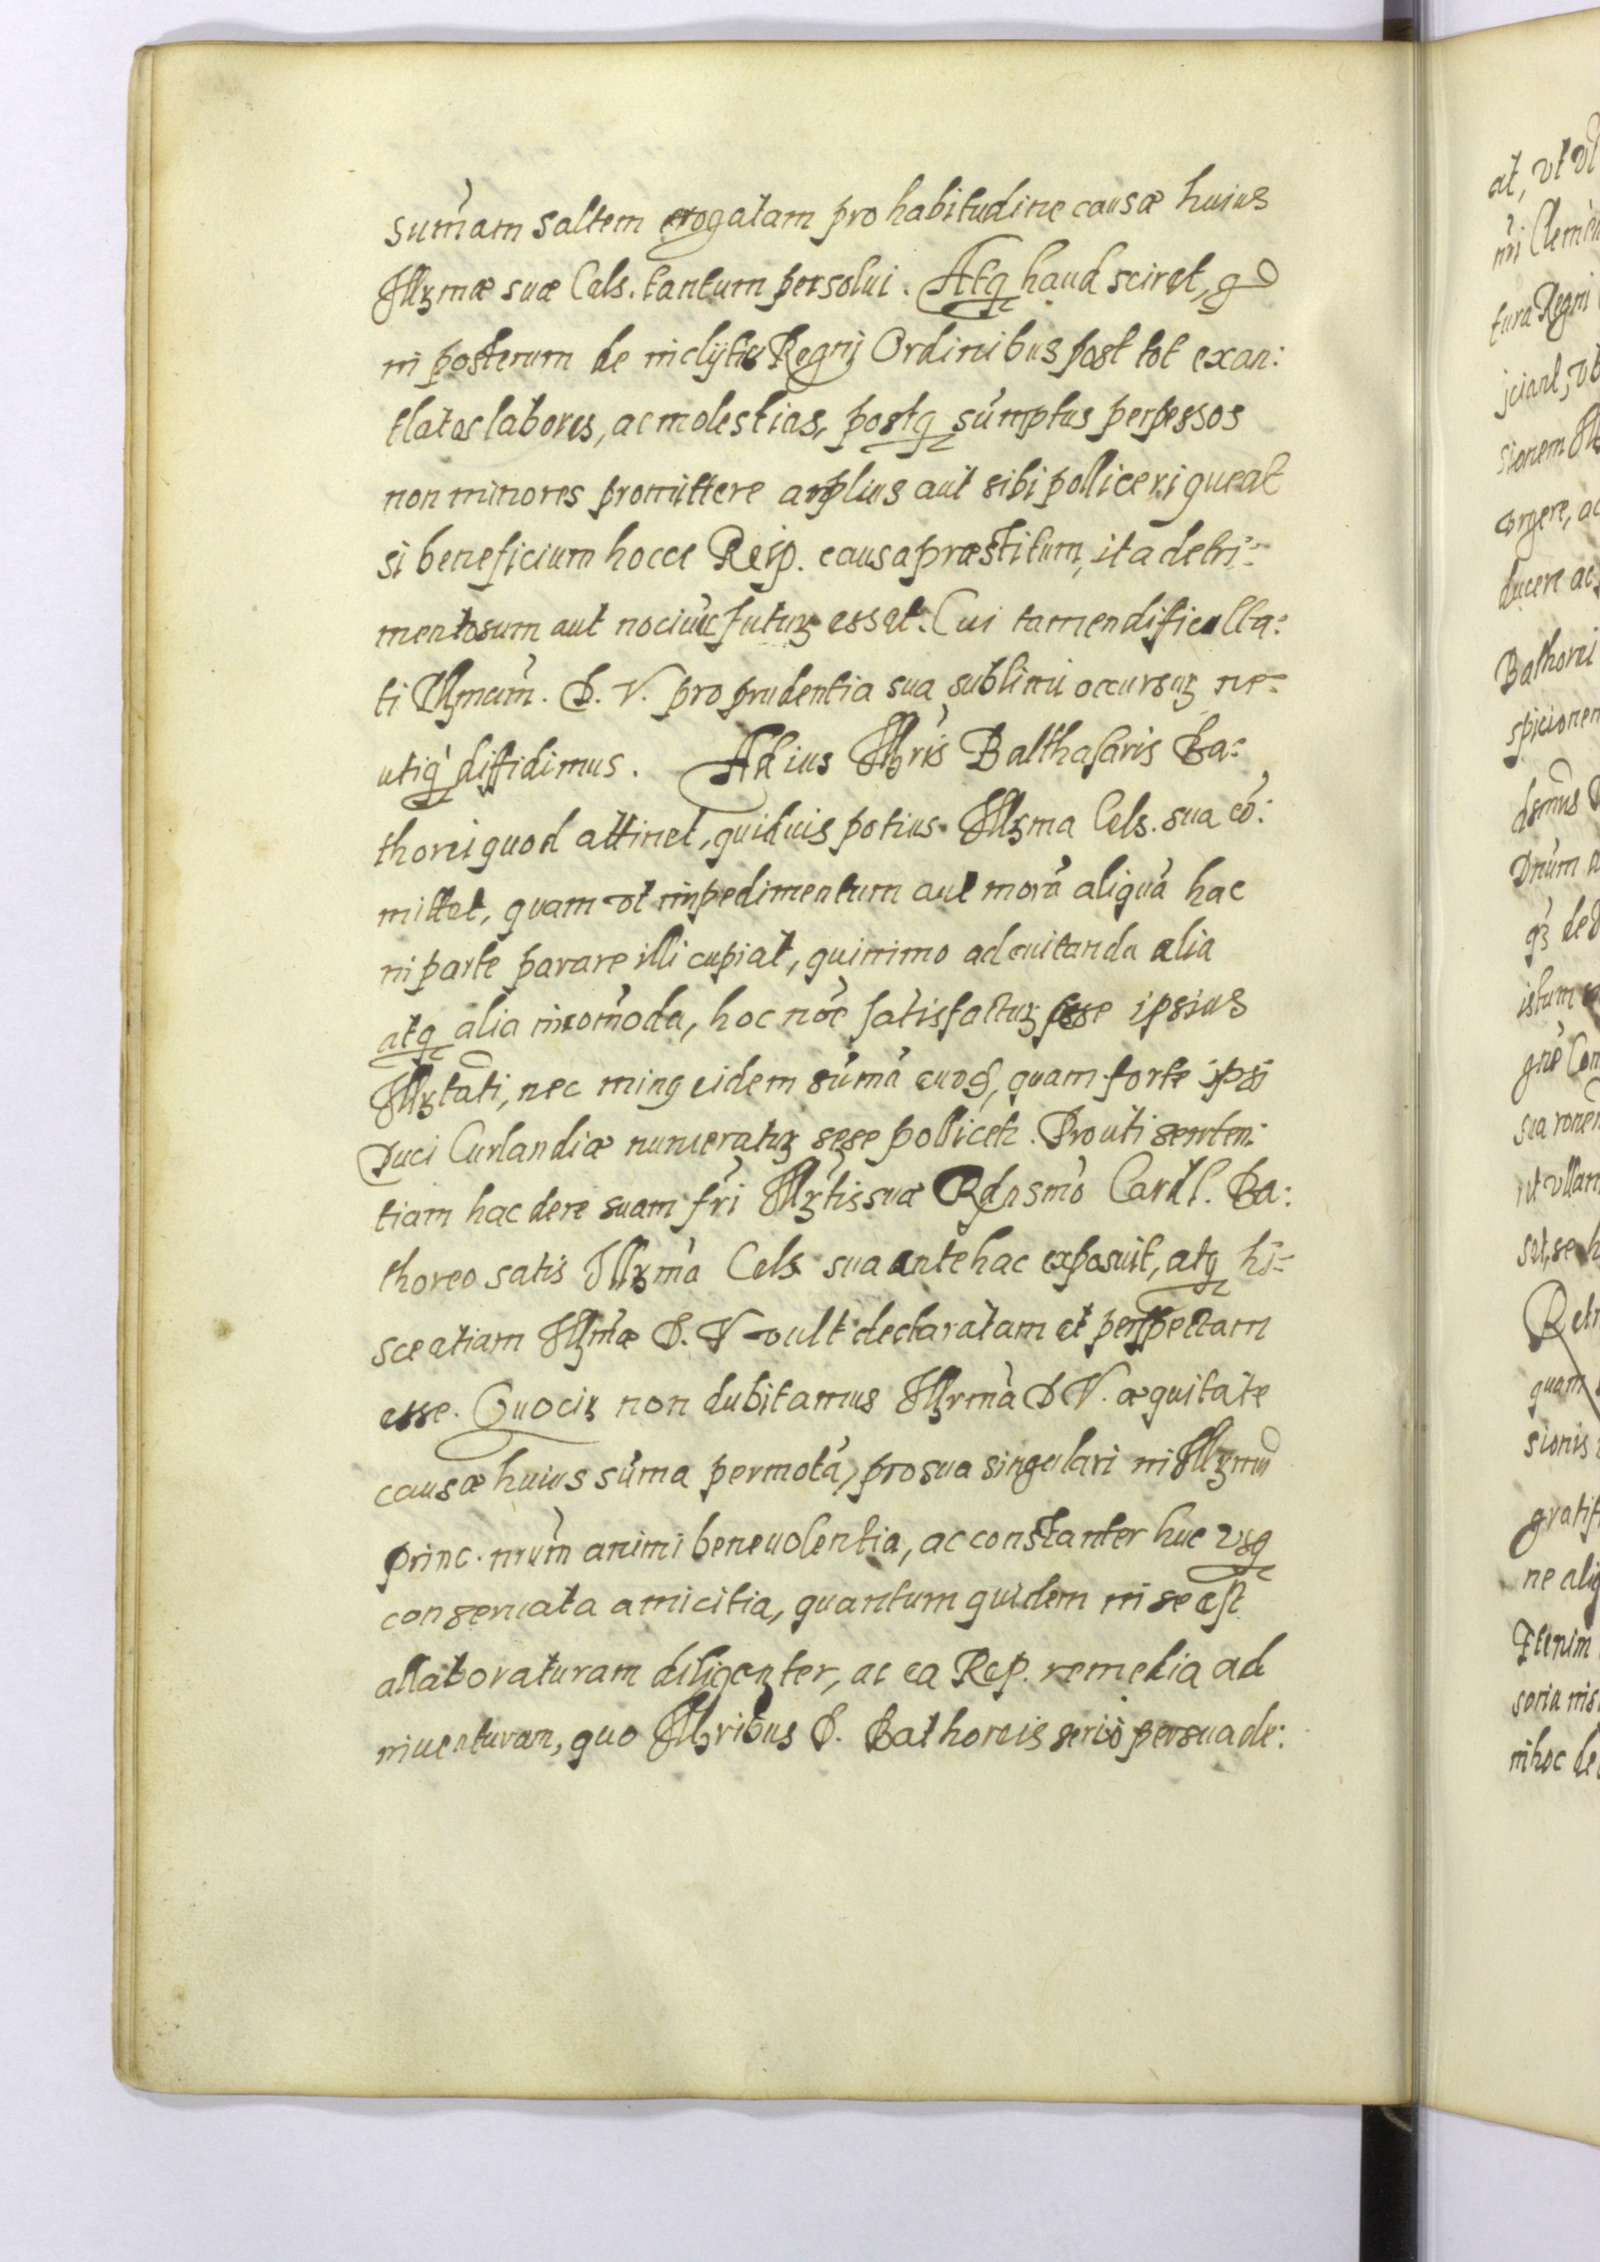 sum̃am saltem erogatam pro habitudine causæ huius
Illꝫmæ suæ Cels. tantum persolui. Atq̃ haud sciret, qd
in posterum de inclytis Regnj Ordinibus post tot exan:
tlatos labores, ac molestias, postq̃ sumptus perpessos
non minores promittere amplius aut sibi polliceri queat
si beneficium hocce Reip. causa præstitum, ita detri:
mentosum aut futuꝝ esset. Cui tamen dificulta:
ti Illꝫmam̃. D. V. pro prudentia sua sublimi occursuꝝ ne:
utiq̃ diffidimus. Ad ius Illꝫris Balthasaris Ba:
thorei quod attinet, quiduis potius Illꝫma Cels. sua cõ:
mittet, quam vt impedimentum aut morã aliquã hac
in parte parare illi cupiat, quinimo ad euitanda alia
atq̃ alia incom̃oda, hoc satisfactuꝝ esse ipsius
Illꝫtati, nec eidem sum̃ã quam forte ipsi
Duci Curlandiæ numeratuꝝ sese pollicet̃. Prouti senten:
tiam hac de re suam fr̃i Illꝫtis suæ Rdnsmo Cardl. Ba:
thoreo satis Illꝫma Cels sua antehac exposuit, atq̃ hi:
sce etiam Illꝫmæ D. V vult declaratam et perspectam
esse. Quociꝫ non dubitamus Illꝫrmã D V. æquitate
causæ huius sum̃a permotã, pro sua singulari in Illꝫmũ
princ. nr̃um animi beneuolentia, ac constanter huc vsq̃
conseruata amicitia, quantum quidem in se est
allaboraturam diligenter, ac ea Reip. remedia ad
inuenturam, quo Illꝫribus D. Bathoreis serio persuade:
at, vt
nr̃i
tura Regni
sionem
vrgere, ac
ducere ac
Bathorei
spicionem
dsmus
Dnum
istum
gñe
sua
vt vllam
set, se
quam
sionis
gratif
ne aliq
Etenim
seria
in hoc de